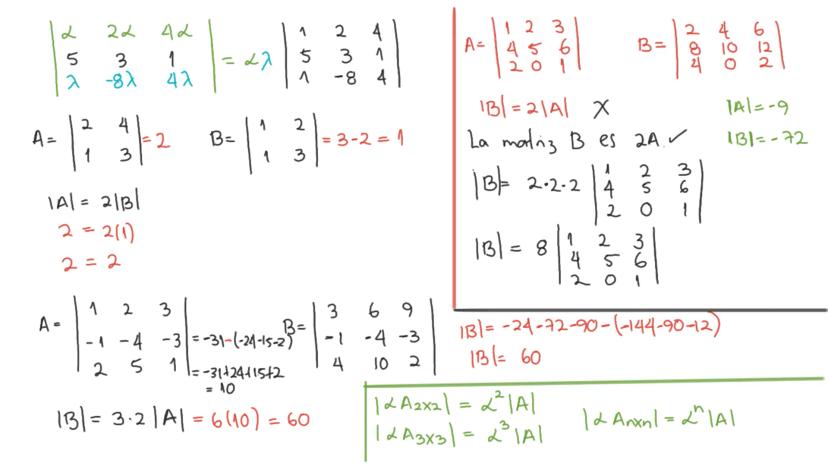 | α 2α 4α |
| 5 3 1 | = αλ
| λ -8λ 4λ |
| 1 2 4 |
| 5 3 1 |
| 1 -8 4 |
A = | 2 4 |
| 1 3 | = 2
B = | 1 2 |
| 1 3 | = 3-2 = 1
|A| = 2|B|
2 = 2(1)
2 = 2
A = | 1 2 3 |
| -1 -4 -3 | = -31-(-24-15-2)
| 2 5 1 | = -31+24+15+2
= 10
B = | 3 6 9 |
| -1 -4 -3 |
| 4 10 2 |
|B| = 3·2|A| = 6(10) = 60
A = | 1 2 3 |
| 4 5 6 |
| 2 0 1 |
B = | 2 4 6 |
| 8 10 12 |
| 4 0 2 |
|B| = 2|A| X
|A| = -9
La matriz B es 2A. ✓
|B| = -72
|B| = 2·2·2 | 1 2 3 |
| 4 5 6 |
| 2 0 1 |
|B| = 8 | 1 2 3 |
| 4 5 6 |
| 2 0 1 |
|B| = -24-72-90-(-144-90-12)
|B| = 60
|αA2x2| = α²|A|
|αA3x3| = α³|A|
|αAnxn| = αⁿ|A|